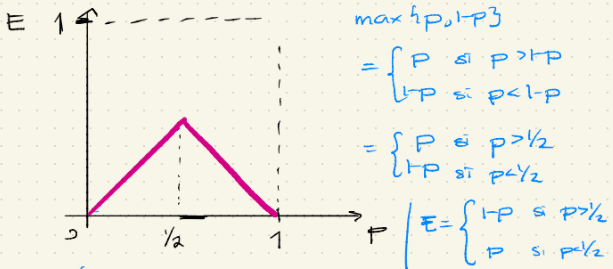 E 1
0 1/2 1 p
max{p,1-p}
= { p si p>1-p
1-p si p<1-p
= { p si p>1/2
1-p si p<1/2
E= { 1-p si p>1/2
p si p<1/2